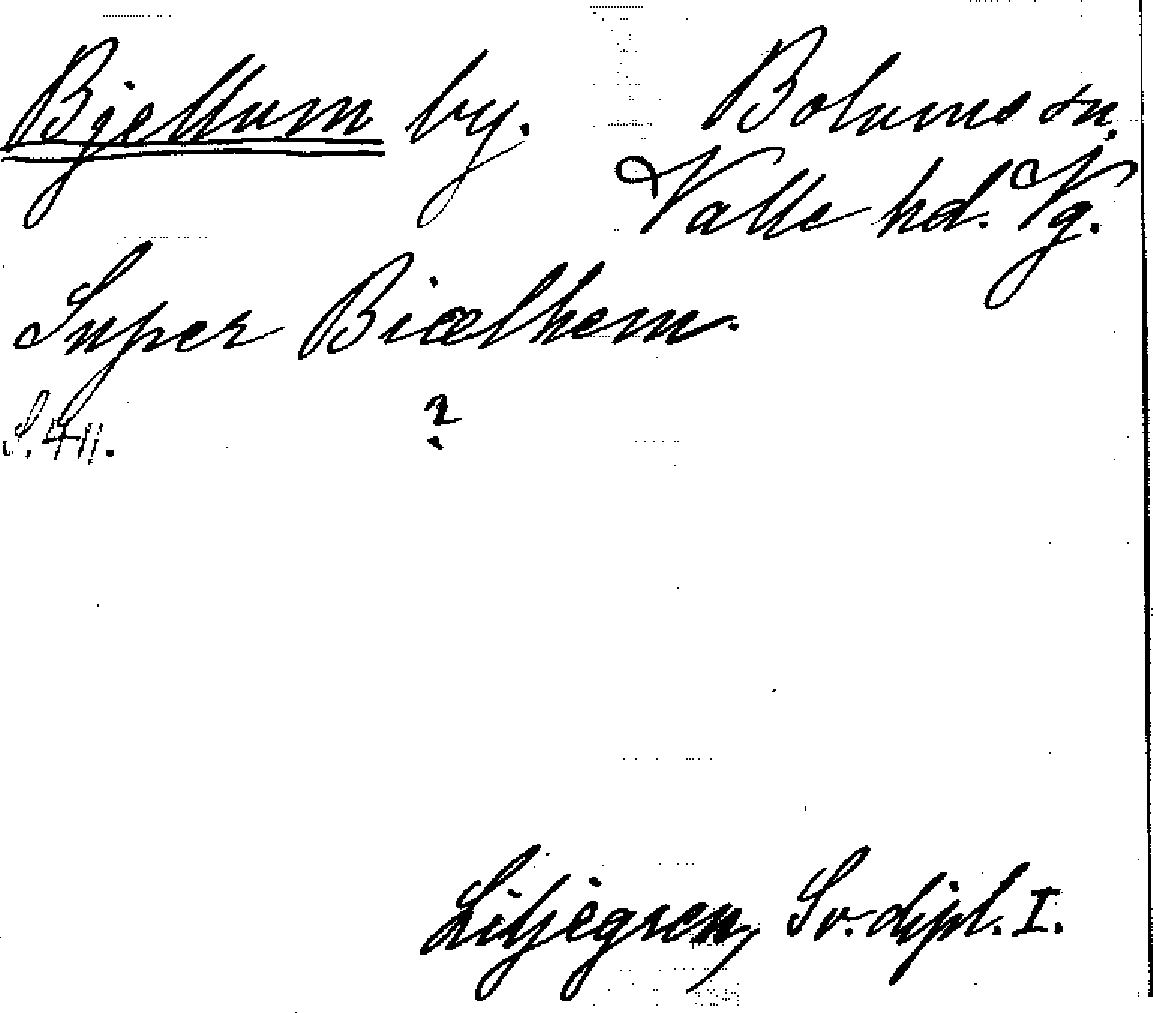 Bjellum by. Bolums sn,
Valle hd. Vg.
Super Biælhem.
S. 411. ?
Liljegren, Sv. dipl. I.